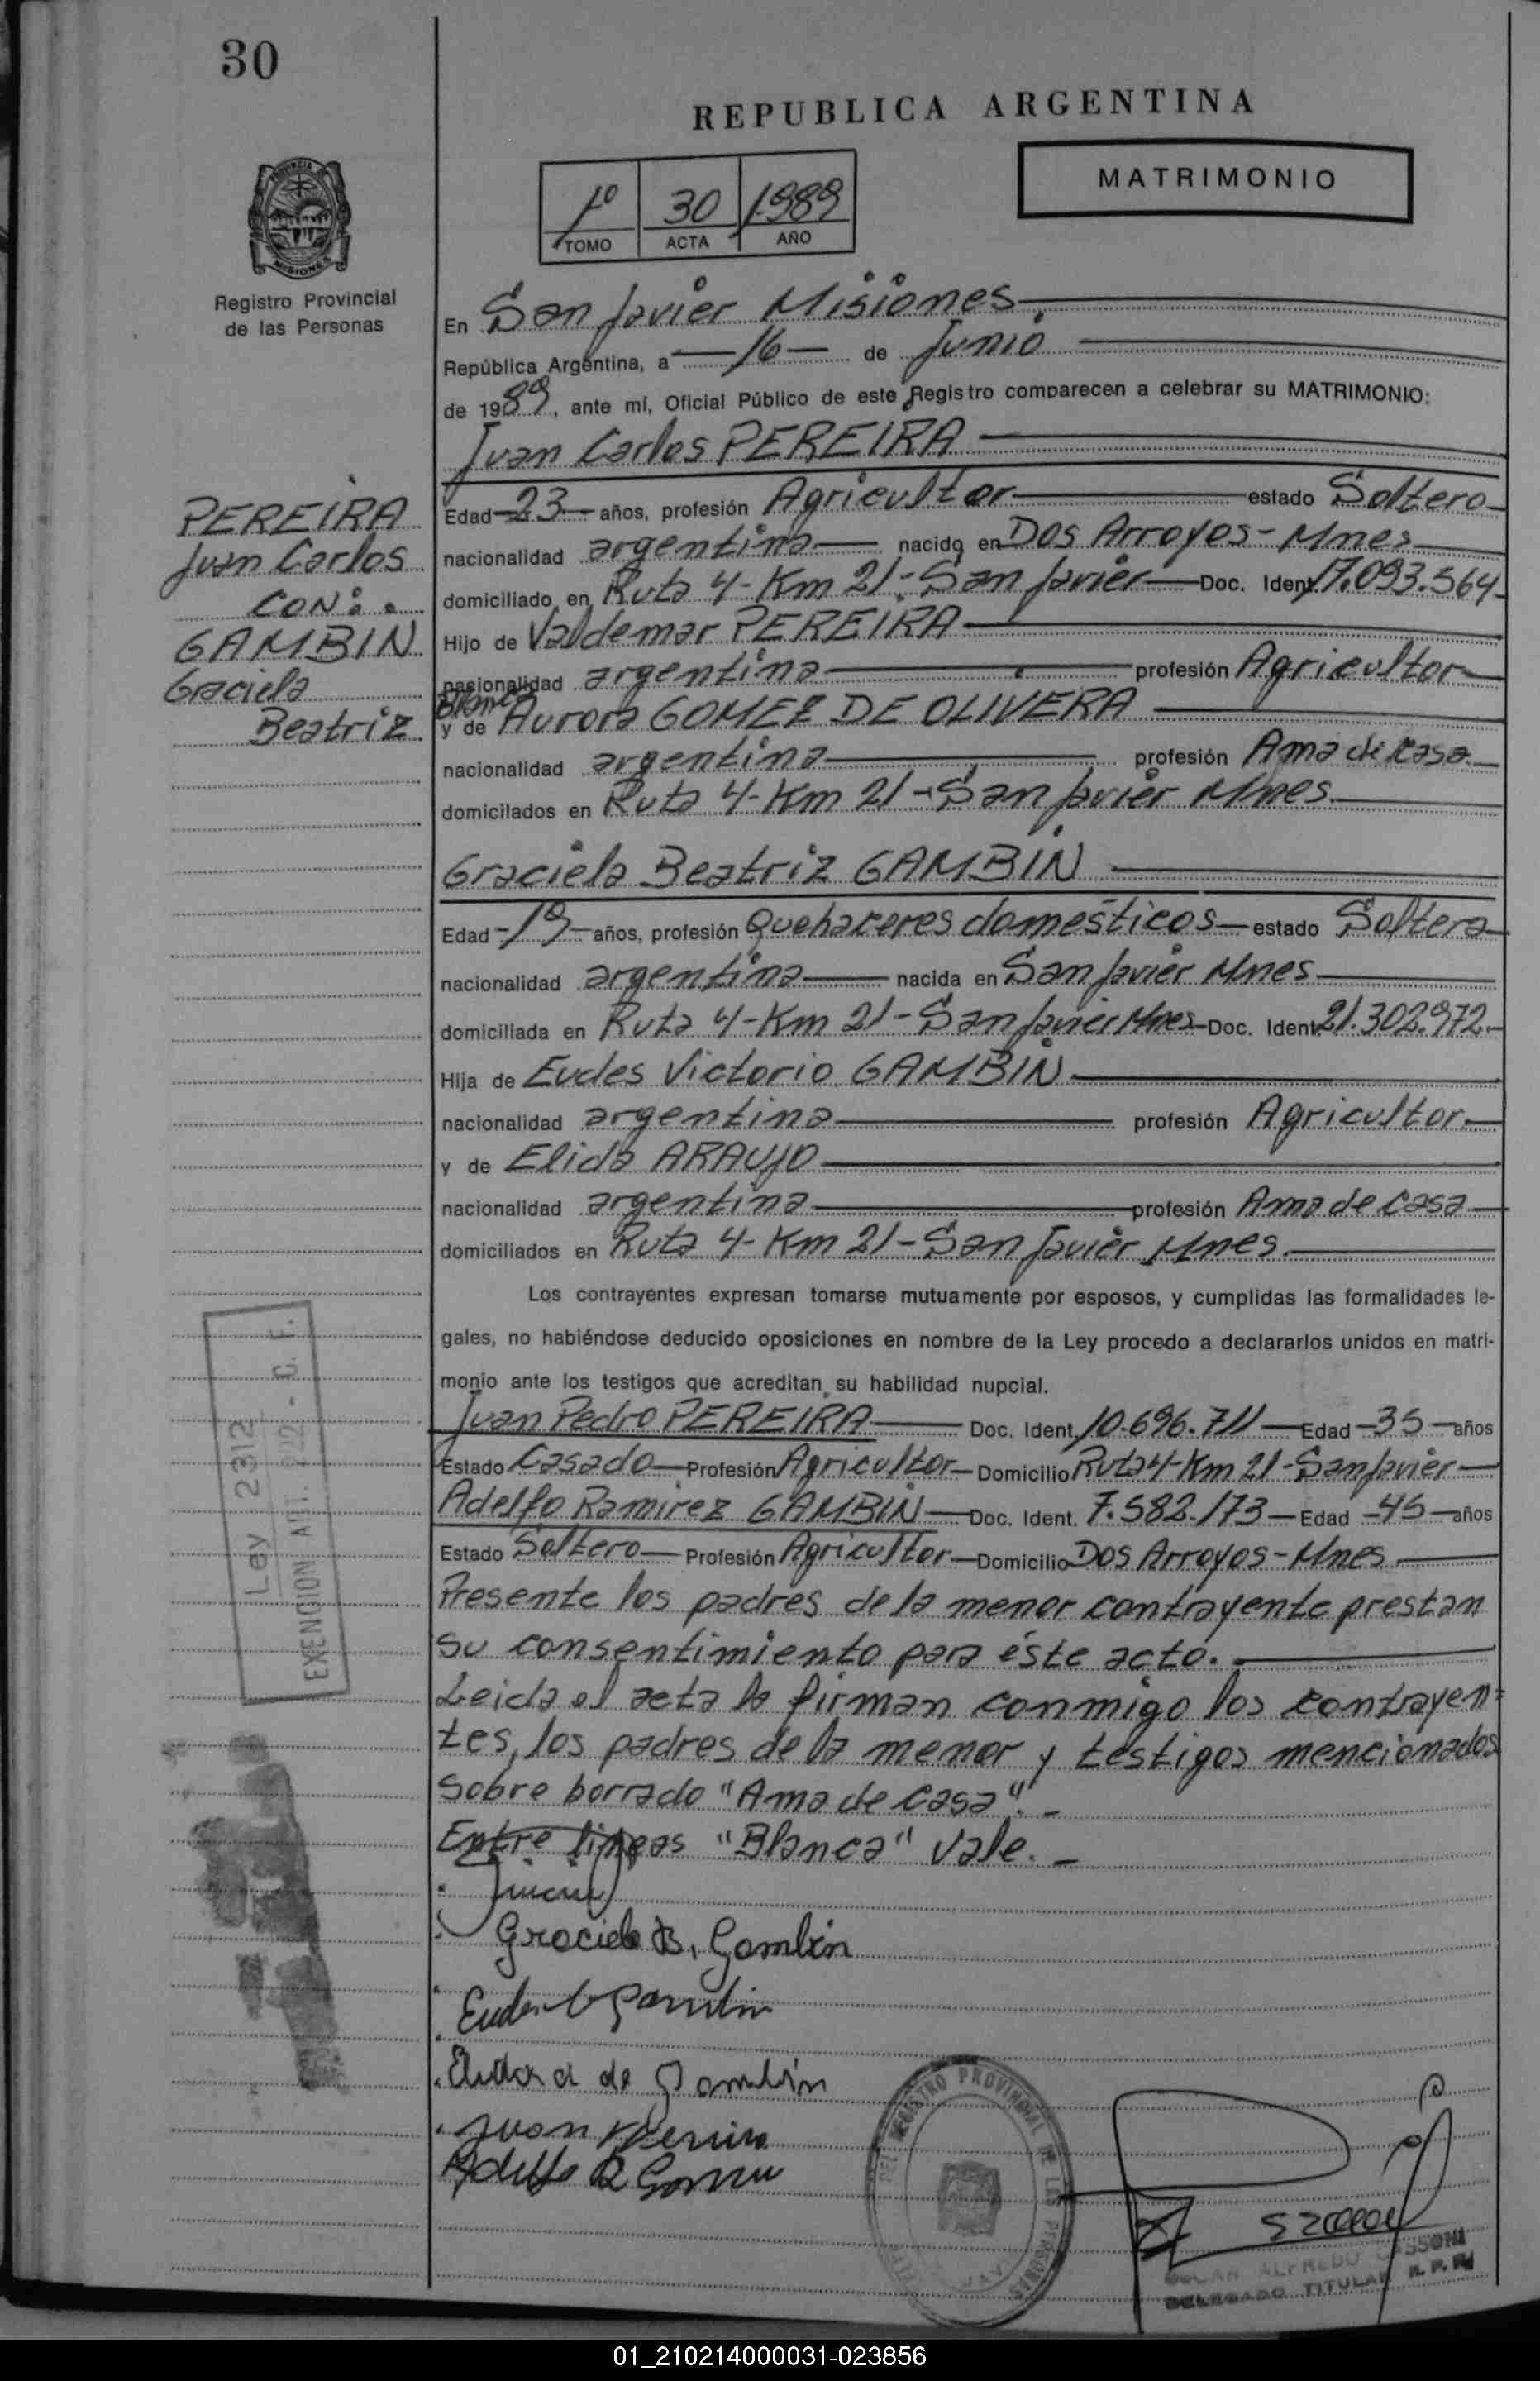 30
REPUBLICA ARGENTINA
MATRIMONIO
1º 30 1989
TOMO ACTA AÑO
PROVINCIA DE
MISIONES
Registro Provincial
de las Personas
En San Javier Misiones
República Argentina, a 16 de Junio
de 1989, ante mí, Oficial Público de este Registro comparecen a celebrar su MATRIMONIO:
Juan Carlos PEREIRA
PEREIRA
Juan Carlos
CON:
GAMBIN
Graciela
Beatriz
Edad 23 años, profesión Agricultor estado Soltero
nacionalidad argentina nacido en Dos Arroyos - Mnes
domiciliado en Ruta 4 - Km 21 - San Javier Doc. Ident. 17.093.564
Hijo de Valdemar PEREIRA
nacionalidad argentina profesión Agricultor
Blanca
y de Aurora GOMEZ DE OLIVERA
nacionalidad argentina profesión Ama de casa
domicilados en Ruta 4 - Km 21 - San Javier Mnes
Graciela Beatriz GAMBIN
Edad 19 años, profesión Quehaceres domésticos estado Soltera
nacionalidad argentina nacida en San Javier Mnes
domiciliada en Ruta 4 - Km 21 - San Javier Mnes Doc. Ident. 21.302.972
Hija de Eudes Victorio GAMBIN
nacionalidad argentina profesión Agricultor
y de Elida ARAUJO
nacionalidad argentina profesión Ama de casa
domiciliados en Ruta 4 - Km 21 - San Javier Mnes
Los contrayentes expresan tomarse mutuamente por esposos, y cumplidas las formalidades le-
gales, no habiéndose deducido oposiciones en nombre de la Ley procedo a declararlos unidos en matri-
monio ante los testigos que acreditan su habilidad nupcial.
Juan Pedro PEREIRA Doc. Ident. 10.696.711 Edad 35 años
Estado Casado Profesión Agricultor Domicilio Ruta 4 - Km 21 - San Javier
Adelfo Ramirez GAMBIN Doc. Ident. 7.582.173 Edad 45 años
Estado Soltero Profesión Agricultor Domicilio Dos Arroyos - Mnes
Presente los padres de la menor contrayente prestan
su consentimiento para éste acto.
Leida el acta la firman conmigo los contrayen=
tes, los padres de la menor y testigos mencionados
Sobre borrado "Ama de casa".-
Entre lineas "Blanca" vale.-
Ley 2312
EXENCION ART. 222 - C. F.
Graciela B. Gambin
Eudes V Gambin
de Gambin
Juan Pereira
Adelfo R Gambin
REGISTRO PROVINCIAL DE LAS PERSONAS
OSCAR ALFREDO
DELEGADO TITULAR R. P. P.
01_210214000031-023856